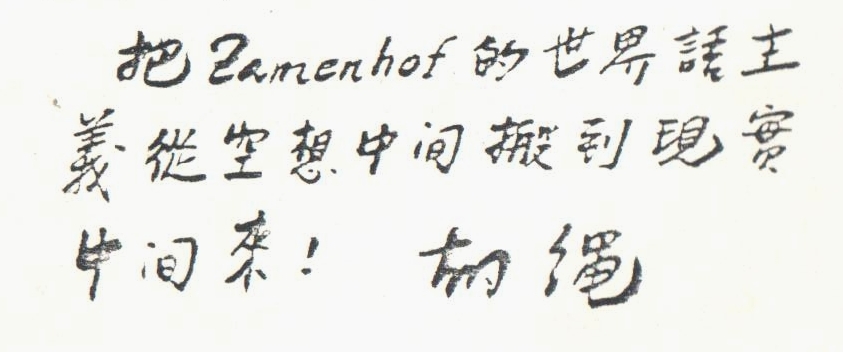 把Zamenhof的世界語主
義從空想中间搬到現實
中间來！ 胡绳